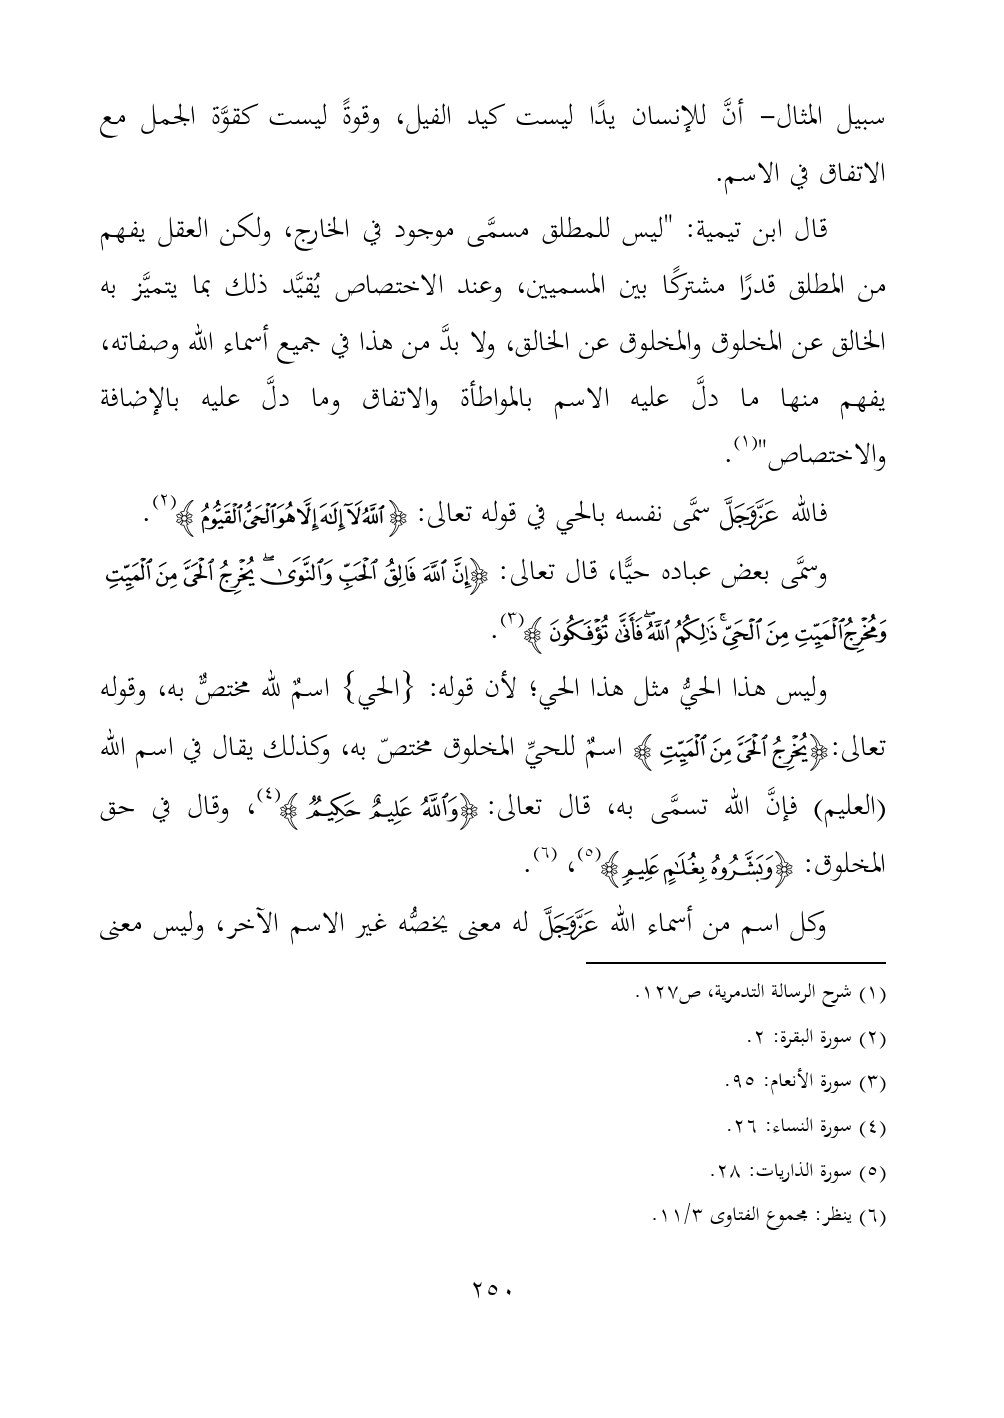 سبيل المثال– أنَّ للإنسان يدًا ليست كيد الفيل، وقوةً ليست كقوَّة الجمل مع
الاتفاق في الاسم.
قال ابن تيمية: "ليس للمطلق مسمَّى موجود في الخارج، ولكن العقل يفهم
من المطلق قدرًا مشتركًا بين المسميين، وعند الاختصاص يُقيَّد ذلك بما يتميَّز به
الخالق عن المخلوق والمخلوق عن الخالق، ولا بدَّ من هذا في جميع أسماء الله وصفاته،
يفهم منها ما دلَّ عليه الاسم بالمواطأة والاتفاق وما دلَّ عليه بالإضافة
والاختصاص"(١).
فالله عَزَّوَجَلَّ سمَّى نفسه بالحي في قوله تعالى: ﴿ٱللَّهُ لَآ إِلَٰهَ إِلَّا هُوَ ٱلْحَىُّ ٱلْقَيُّومُ﴾(٢).
وسمَّى بعض عباده حيًّا، قال تعالى: ﴿إِنَّ ٱللَّهَ فَالِقُ ٱلْحَبِّ وَٱلنَّوَىٰ ۖ يُخْرِجُ ٱلْحَىَّ مِنَ ٱلْمَيِّتِ
وَمُخْرِجُ ٱلْمَيِّتِ مِنَ ٱلْحَىِّ ۚ ذَٰلِكُمُ ٱللَّهُ ۖ فَأَنَّىٰ تُؤْفَكُونَ﴾(٣).
وليس هذا الحيُّ مثل هذا الحي؛ لأن قوله: {الحي} اسمٌ لله مختصٌّ به، وقوله
تعالى: ﴿يُخْرِجُ ٱلْحَىَّ مِنَ ٱلْمَيِّتِ﴾ اسمٌ للحيِّ المخلوق مختصّ به، وكذلك يقال في اسم الله
(العليم) فإنَّ الله تسمَّى به، قال تعالى: ﴿وَٱللَّهُ عَلِيمٌ حَكِيمٌ﴾(٤)، وقال في حق
المخلوق: ﴿وَبَشَّرُوهُ بِغُلَٰمٍ عَلِيمٍ﴾(٥)، (٦).
وكل اسم من أسماء الله عَزَّوَجَلَّ له معنى يخصُّه غير الاسم الآخر، وليس معنى
(١) شرح الرسالة التدمرية، ص١٢٧.
(٢) سورة البقرة: ٢.
(٣) سورة الأنعام: ٩٥.
(٤) سورة النساء: ٢٦.
(٥) سورة الذاريات: ٢٨.
(٦) ينظر: مجموع الفتاوى ١١/٣.
٢٥٠